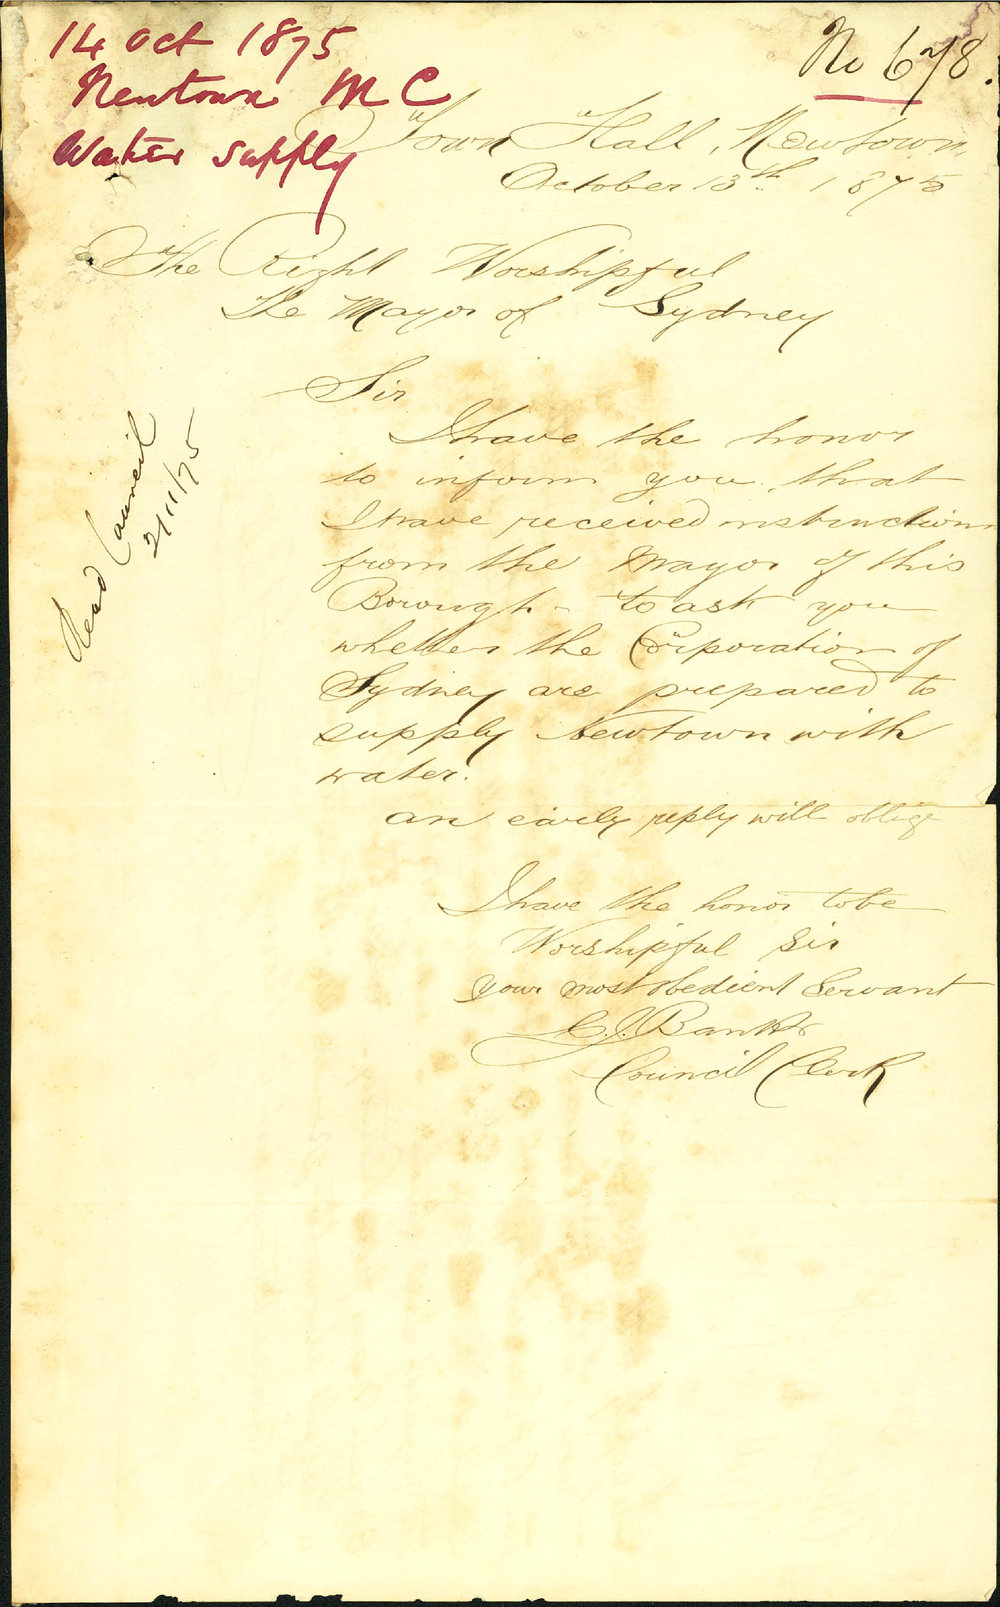 14 Oct 1875
Newtown M C
Water supply
No 678.
Town Hall, Newtown,
October 13th. 1875
The Right Worshipful
The Mayor of Sydney
Sir
I have the honor
to inform you, that
I have received instructions
from the Mayor of this
Borough - to ask you
whether the Corporation of
Sydney are prepared to
supply Newtown with
water.
an early reply will oblige
I have the honor to be
Worshipful Sir
your most obedient Servant
C. J. Banks
Council Clerk
Read Council
2/11/75